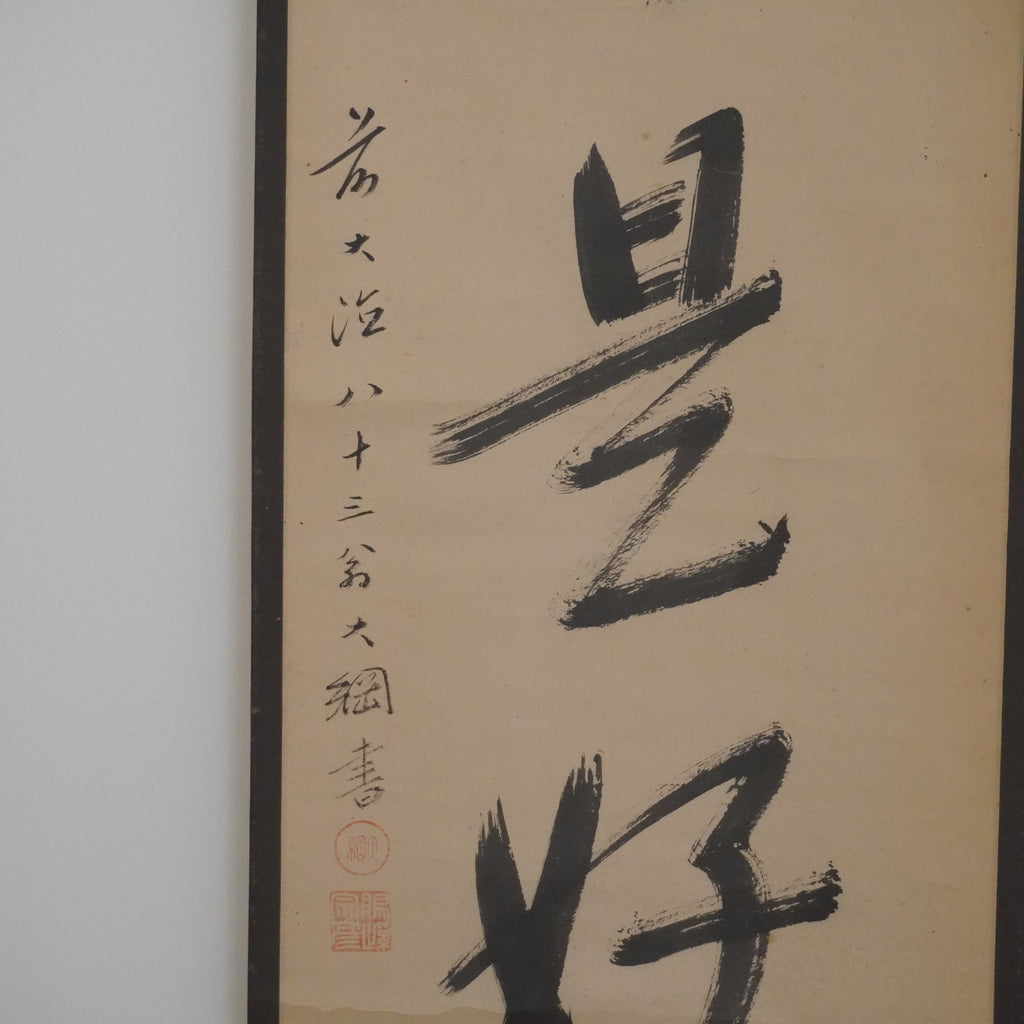 是好
前大德八十三翁大綱書